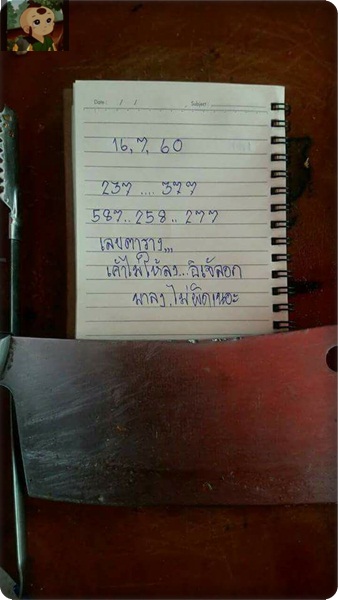 Date : / / Subject :
16, 7, 60
237 .... 377
587.. 258.. 277
เลขตาราง,,,
เค้าไม่ให้ลง...อิเจ้ลอก
มาลง, ไม่ผิดเนอะ